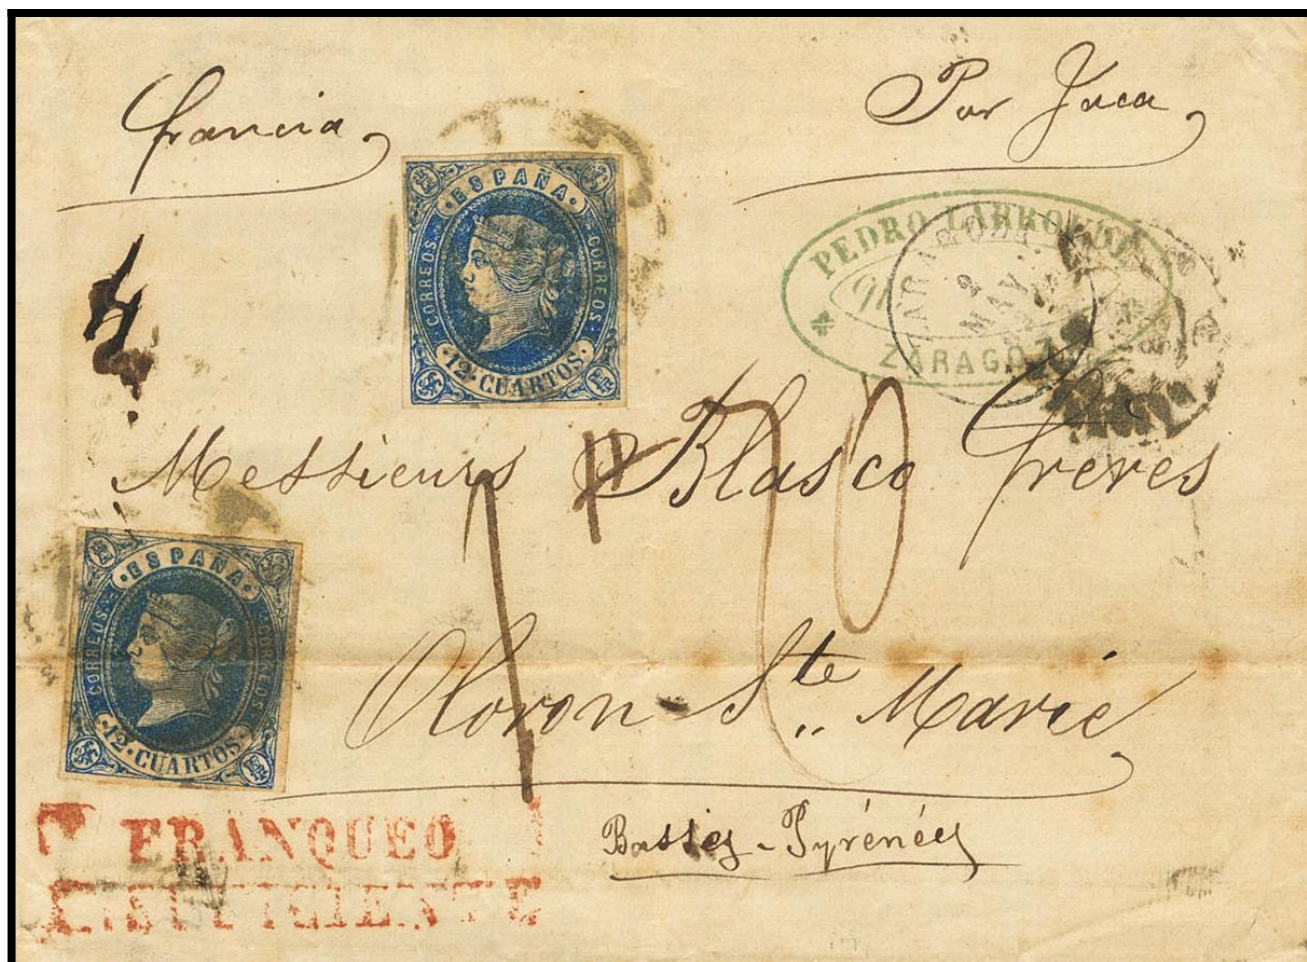 francia
Por Jaca
·ESPAÑA·
CORREOS
CORREOS
·12·CUARTOS·
PEDRO
ZARAGOZA
ZARAGOZA
2
MAY.
4
Messieurs Blasco frères
·ESPAÑA·
CORREOS
CORREOS
·12·CUARTOS·
Oloron-Ste Marie
Basses-Pyrénées
FRANQUEO
INSUFICIENTE